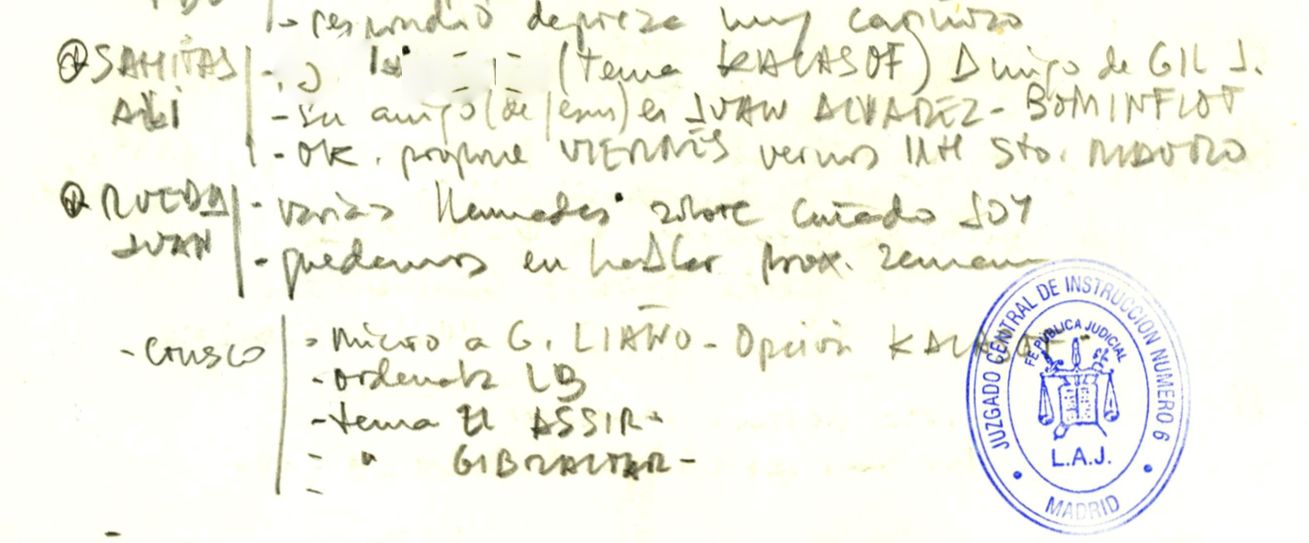 - respondió depreza muy cariñoso
⊕ SAHITAS - (tema KALASOF) Amigo de GIL J.
- su amigo (de Jesus) es JUAN ALVAREZ - BOMINFLOT
- OK. propone VIERNES vernos NH Sto. MAURO
RUEDA - varias llamadas sobre cuñado SOY
JUAN - quedamos en hablar prox. semana
- CONSCO - Micro a G. LIAÑO - Opción KALASOF -
- ordenata LB
- tema El ASSIR -
- " GIBRALTAR -
-
-
JUZGADO CENTRAL DE INSTRUCCION NUMERO 6
FE PÚBLICA JUDICIAL
L.A.J.
MADRID